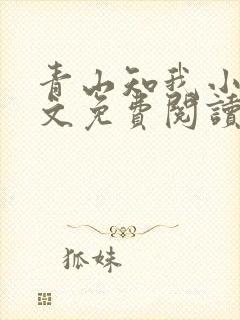 青山知我小
文免費閱讀
狐妹